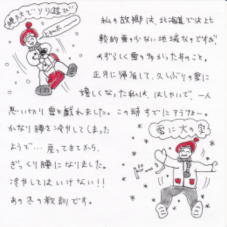 雪の上でソリ遊び
私の故郷は、北海道では比
較的雪の少ない地域なのですが
めずらしく雪の多かった年のこと。
正月に帰省して、久しぶりの雪に
嬉しくなった私は、はしゃいで、一人
思いっきり雪と戯れました。この時すでにアラフォー。
かなり腰を冷やしてしまった
ようで…戻ってきてから、
ぎっくり腰になりました。
冷やしてはいけない!!
あの冬の教訓です。
雪に大の字